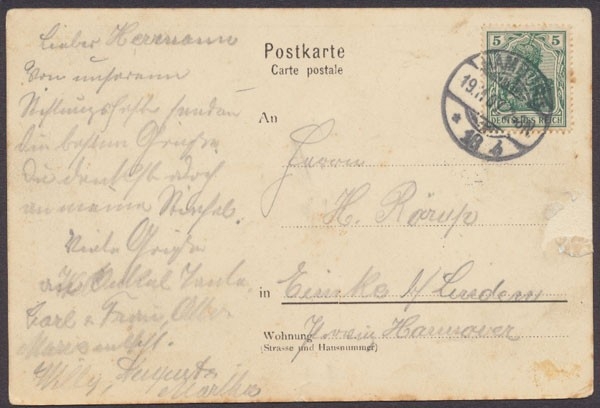 Lieber Herrmann
Von unserem
Stiftungsfeste senden
die besten Grüße.
Du denkst doch
an meine Stiefel.
Viele Grüße
an Tante
Carl u. Frau, 
Willy, Auguste
Martha
Postkarte
Carte postale
5 5
DEUTSCHES REICH
HAMBURG
19.11.07
* 19 4
An
Herrn
H. Rörup
in Eimke b/ Linden
Wohnung Provinz Hannover
(Strasse und Hausnummer)